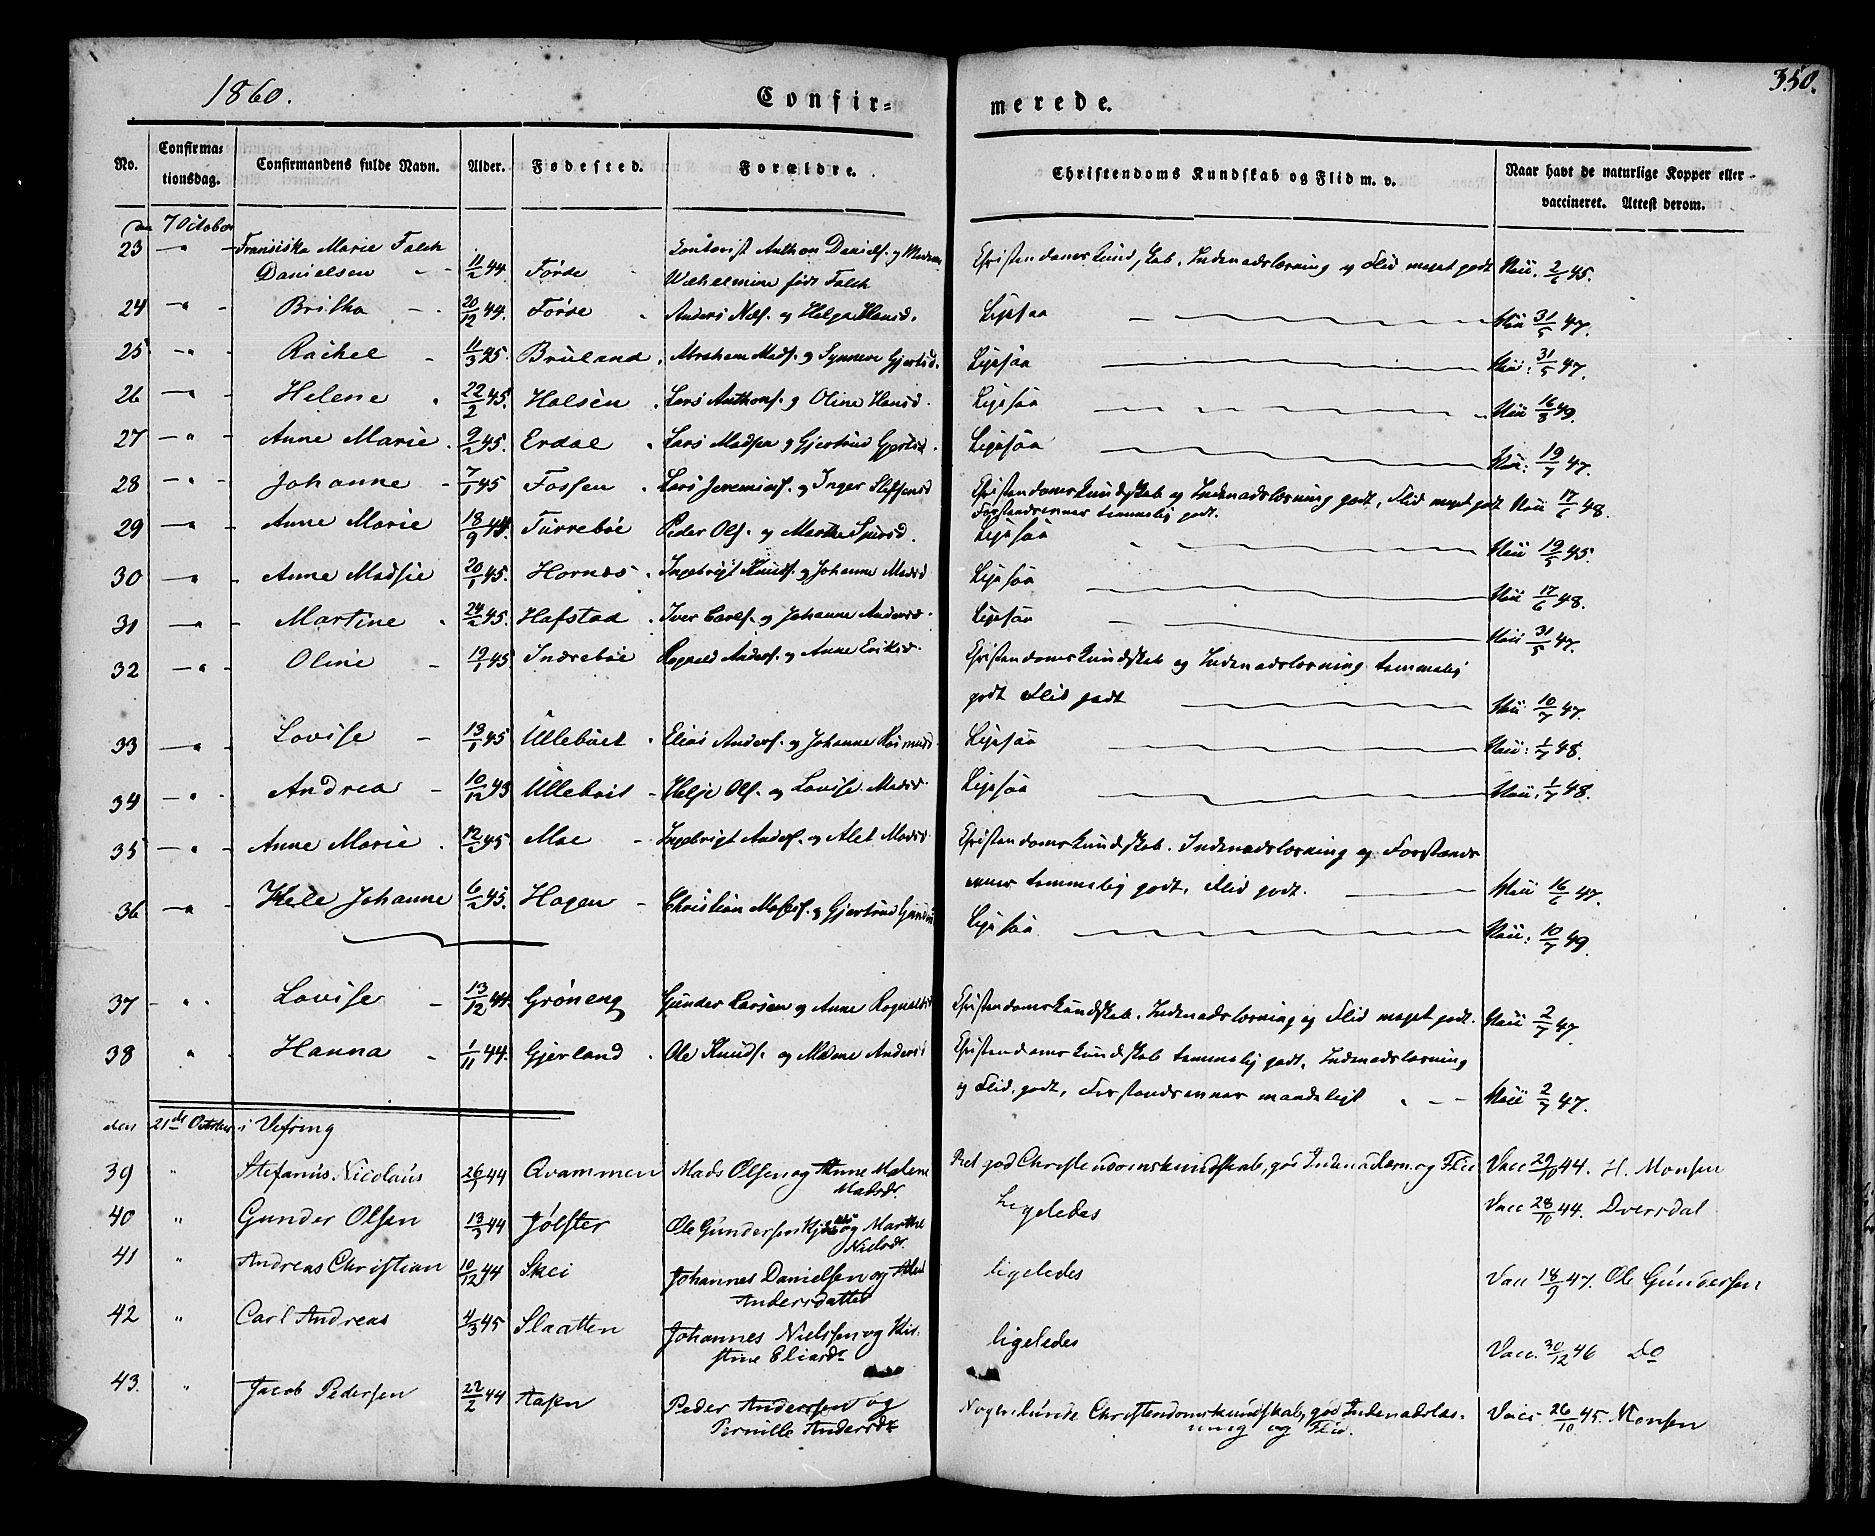 1860.
Confir=
merede.
350.
No.
Confirma=
tionsdag.
Confirmandens fulde Navn.
Alder.
Fødested.
Forældre.
Christendoms Kundskab og Flid m. v.
Naar havt de naturlige Kopper eller
vaccineret. Attest derom.
7 October
23 " Fransiska Marie Falch
Danielsen 11/2 44. Førde Anthon Daniels. og
født Falch Christendomskundskab, Indenadslæsning og Flid meget godt 2/6 45.
24 " Brilka 20/12 44. Førde Anders Nils. og Helga Hansd. Ligesaa 31/5 47.
25 " Rachel 11/3 25. Bruland Abraham Mads. og Synneve Gjertsd. Ligesaa 31/5 47.
26 " Helene 22/2 45. Halsen Lars Anthons. og Oline Hansd. Ligesaa 16/8 49.
27 " Anne Marie 9/2 45. Erdal Lars Madsen og Gjertrud Gjertsd. Ligesaa 19/7 47.
28 " Johanne 7/1 45 Fossen Lars Jeremias. og Inger Steffensd Christendomskundskab og Indenadslæsning godt, Flid meget godt
Forstandsevner temmelig godt. 17/6 48.
29 " Anne Marie 18/9 44. Turrebøe Peder Ols. og Marthe Ligesaa 19/5 45.
30 " Anne Madsie 20/1 45. Hornes Ingebrigt Knuds. og Johanne Madsd Ligesaa 17/6 48.
31 " Martine 24/2 45. Hafstad Iver Carls. og Johanne Andersd. Ligesaa 31/5 47.
32 " Oline 19/1 45. Indrebøe Rognald Anders. og Anne Eriksd. Christendomskundskab og Indenadslæsning temmelig
godt Flid godt 10/7 47.
33 " Lovise 13/1 45 Ullebøet Elias Anders. og Johanne Rasmusd. Ligesaa 1/7 48.
34 " Andrea 10/12 43 Ullebøet Helje Ols. og Lovise Madsd. Ligesaa 1/7 48.
35 " Anne Marie 12/2 45 Moe Ingebrigt Anders. og Alet Madsd. Christendomskundskab, Indenadslæsning og Forstands
evner temmelig godt, Flid godt. 16/6 47.
36 " Johanne 6/2 45. Hagen Christian Moses. og Gjertrud Ligesaa 10/7 49.
37 " Lovise 13/12 44. Grøneng Gunder Larsen og Anne Rognaldsd Christendomskundskab, Indenadslæsning og Flid meget godt. 2/7 47.
38 " Hanna 1/11 44. Gjerland Ole Knuds. og Malene Andersd Christendomskundskab temmelig godt, Indenadslæsning
og Flid godt, Forstandsevner maadeligt 2/7 47.
den 21de October i Vefring
39 " Stefanus Nicolaus 26/9 44 Qvammen Mads Olsen og Anne Malene
Madsdr. Ret god Christendomskundskab, god Indenadlæsn. og Flid Vacc 29/10 44. H. Monsen
40 " Gunder Olsen 13/3 44 Jølster Ole Gundersen og Marthe
Nielsdr. Ligeledes Vacc 28/10 44. Dvergdal
41 " Andreas Christian 10/12 44 Skei Johannes Danielsen og
Andersdatter ligeledes Vacc 18/9 47. Ole Gundersen
42 " Carl Andreas 4/3 45 Slaatten Johannes Nielssen og Kir-
stine Eliasdr ligeledes Vacc. 30/12 46 Do
43. " Jacob Pedersen 22/2 44 Aasen Peder Anderssen og
Pernille Andersdr Nogenlunde Christendomskundskab, god Indenadslæs-
ning og Flid. Vacc 26/10 45. Monsen